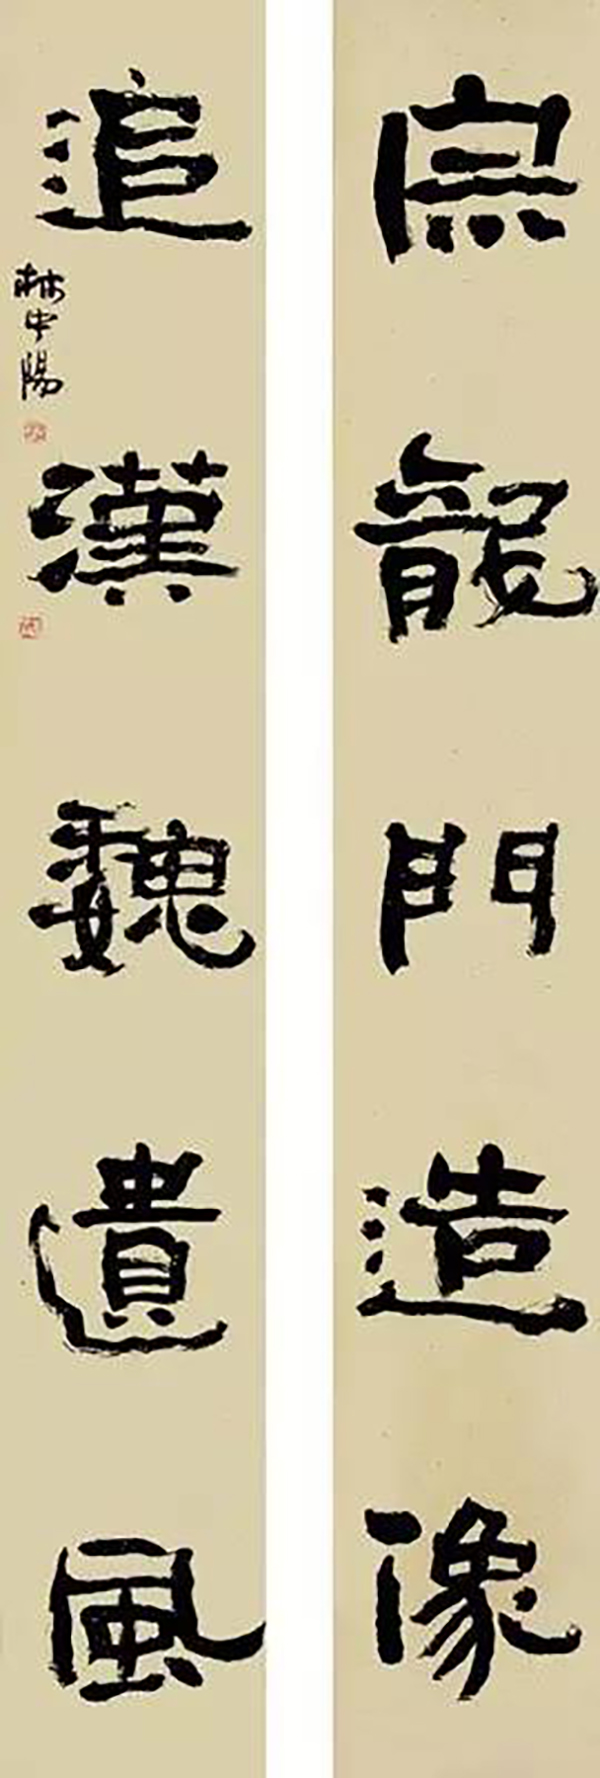 宗龍門造像
追漢魏遺風
林中陽